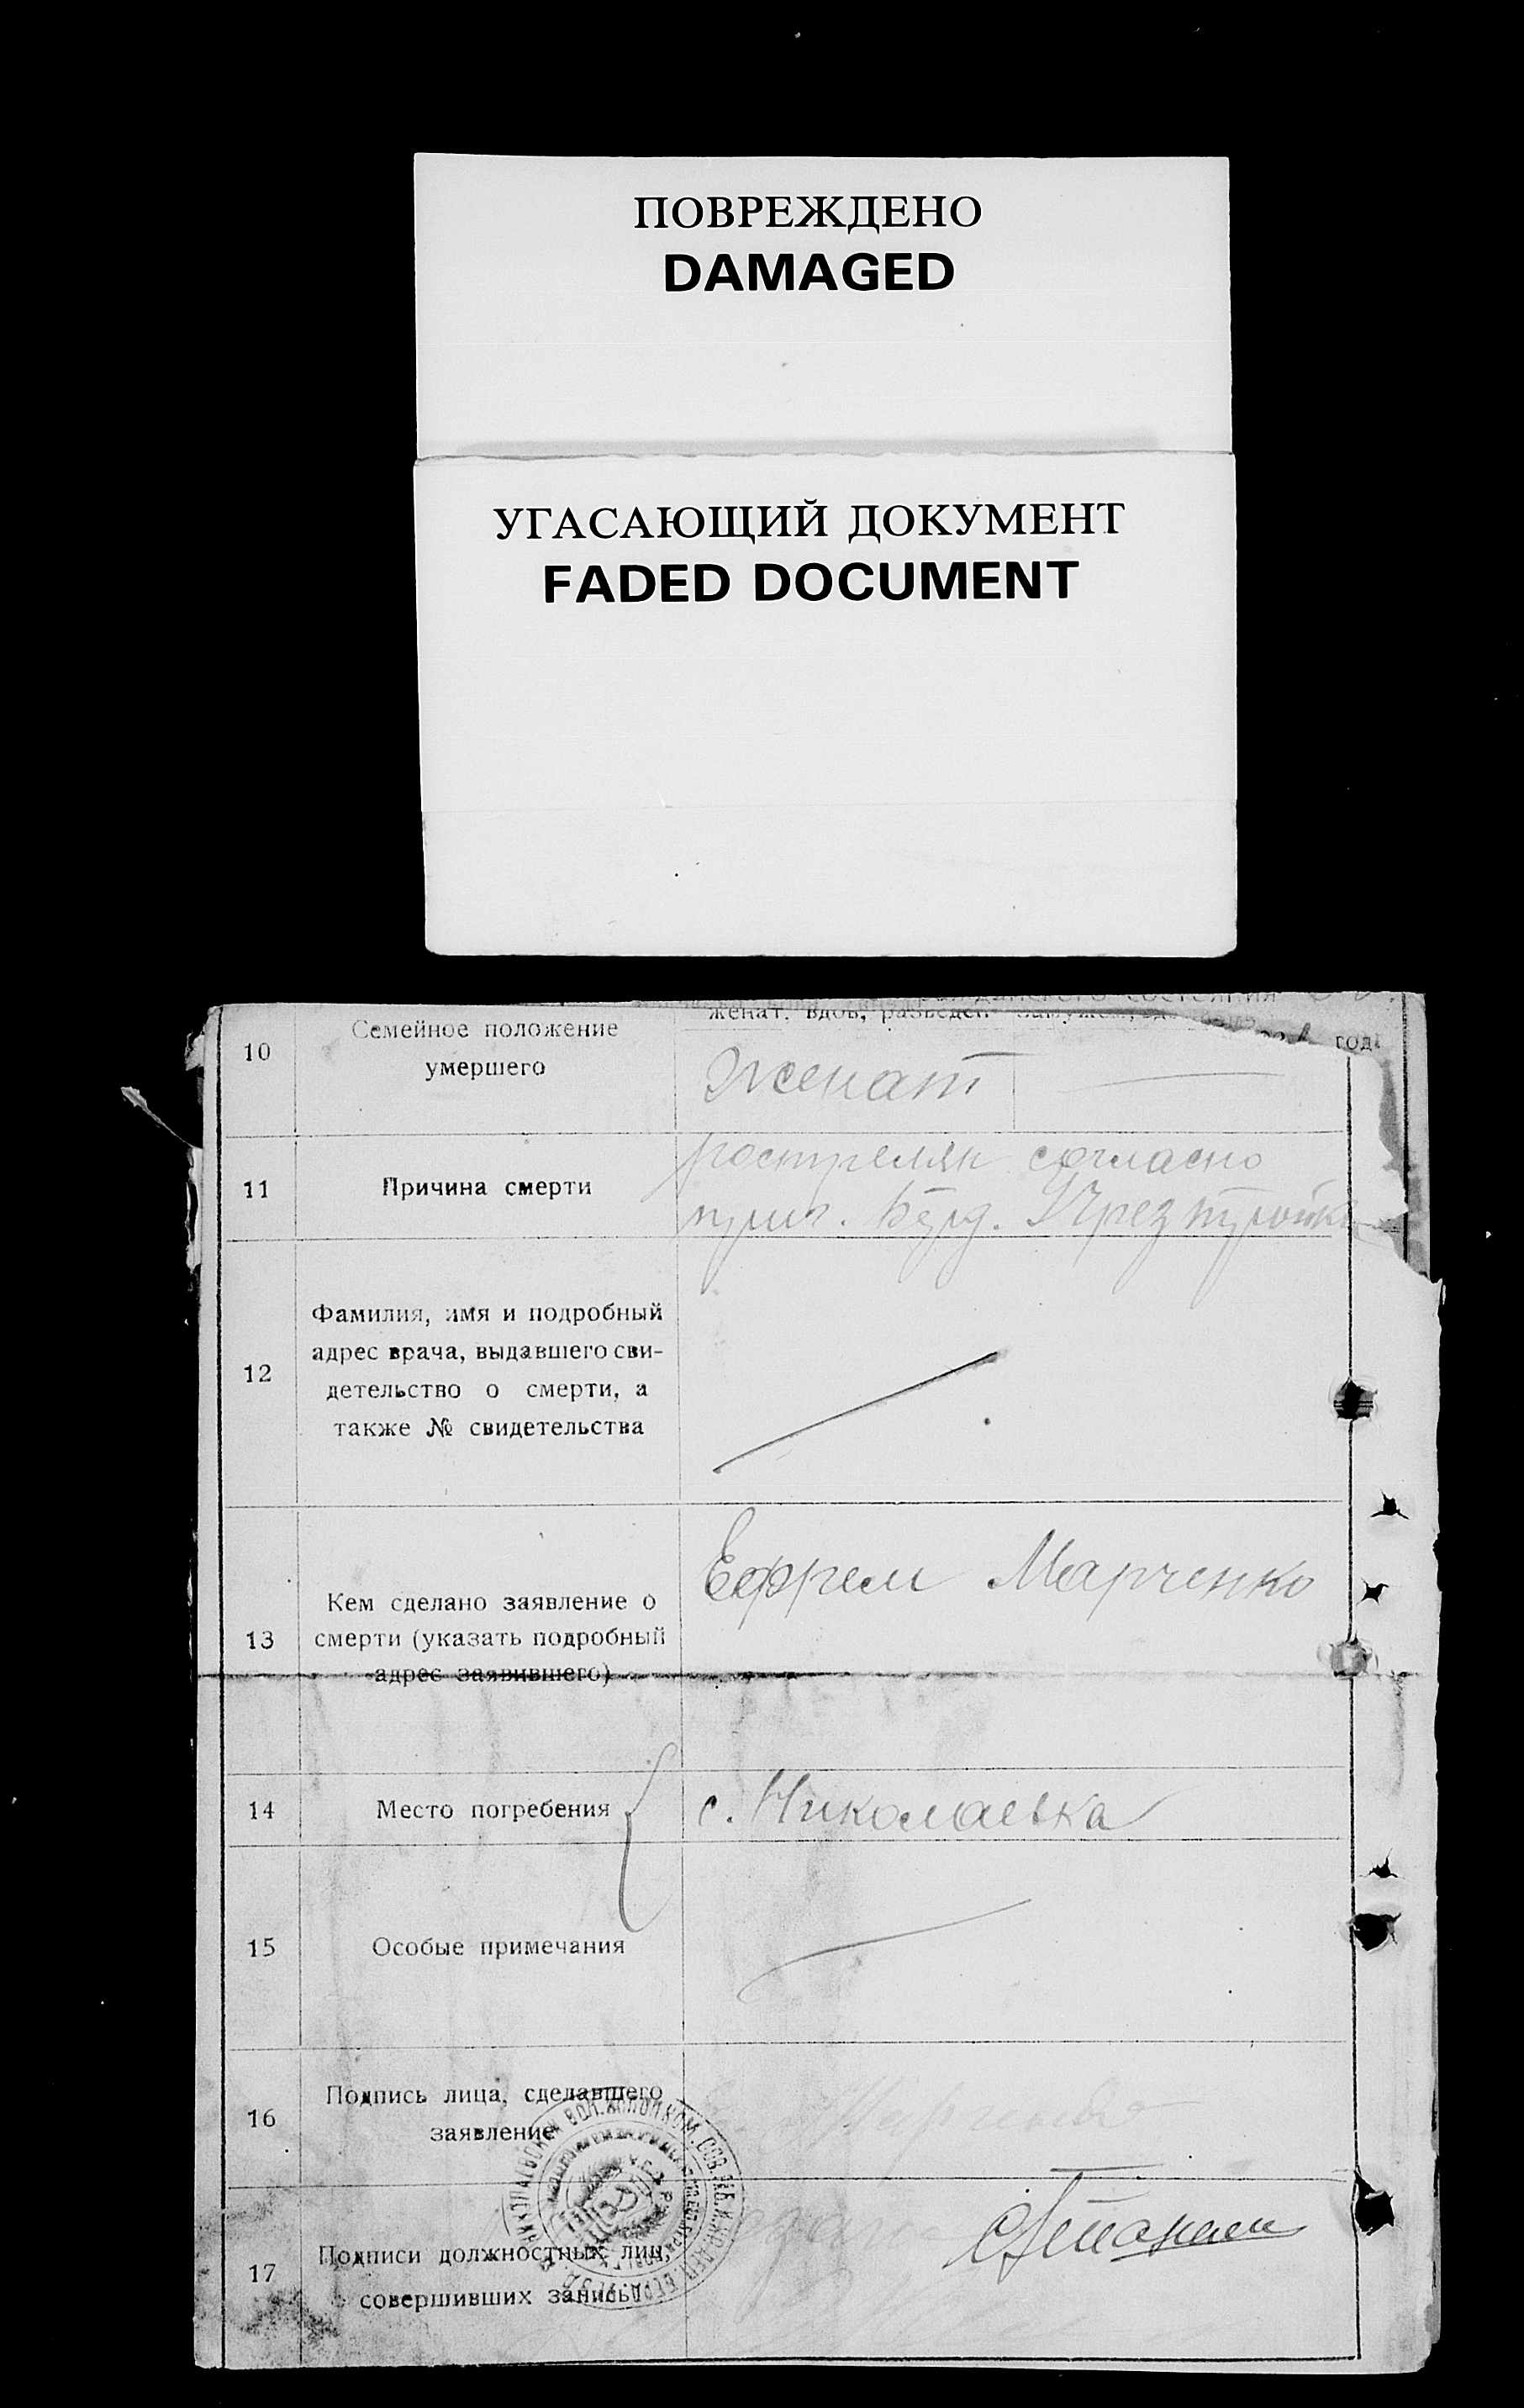 ПОВРЕЖДЕНО
DAMAGED
УГАСАЮЩИЙ ДОКУМЕНТ
FADED DOCUMENT
состояния
женат, вдов, разведен замужем,
год
10
Семейное положение
умершего
Женат
11
Причина смерти
рострелян согласно
12
Фамилия, имя и подробный
адрес врача, выдавшего сви-
детельство о смерти, а
также № свидетельства
13
Кем сделано заявление о
смерти (указать подробный
адрес заявившего)
Ефрем Марченко
14
Место погребения
с. Николаевка
15
Особые примечания
16
Подпись лица, сделавшего
заявление
17
Подписи должностных лиц,
совершивших запись